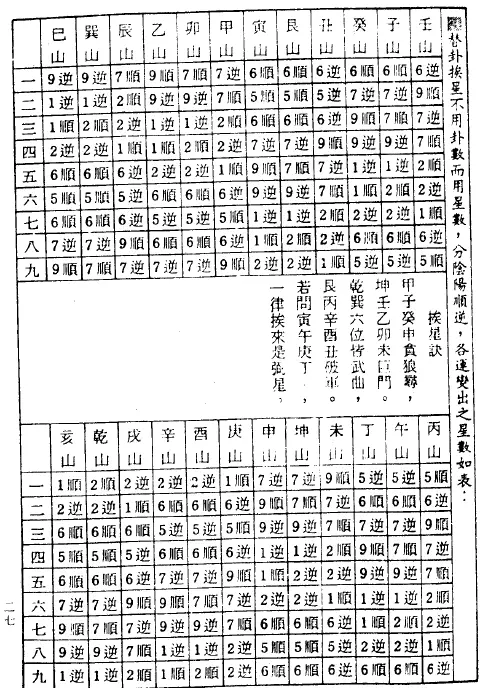 替卦挨星不用卦數而用星數，分陰陽順逆，各運變出之星數如表：
巳山 巽山 辰山 乙山 卯山 甲山 寅山 艮山 丑山 癸山 子山 壬山
一 9逆 9逆 7順 9順 7順 7逆 6順 6順 6逆 6順 6順 6逆
二 1逆 1逆 2順 9逆 9逆 7順 5順 5順 5逆 7逆 7逆 9順
三 1順 2順 2逆 1逆 1逆 2順 6順 6順 6逆 9順 7順 7順
四 2逆 2逆 1順 1順 2順 2逆 7逆 7逆 9順 9逆 9逆 7順
五 6順 6順 6逆 2逆 2逆 1順 9順 7順 7逆 1逆 1逆 2順
六 5順 5順 5逆 6順 6順 6逆 9逆 9逆 7順 1順 2順 2逆
七 6順 6順 6逆 5逆 5逆 5順 1逆 1逆 2順 2逆 2逆 1順
八 7逆 7逆 9順 6順 6順 6逆 1順 2順 2逆 6順 6順 6逆
九 9順 7順 7逆 7逆 7逆 9順 2逆 2逆 1順 5逆 5逆 5順
挨星訣
甲子癸申貪狼尋，
坤壬乙卯未巨門。
乾巽六位皆武曲，
艮丙辛酉丑破軍。
若問寅午庚丁，
一律挨來是弼星。
亥山 乾山 戌山 辛山 酉山 庚山 申山 坤山 未山 丁山 午山 丙山
一 1順 2順 2逆 2逆 2逆 1順 7逆 7逆 9順 5逆 5逆 5順
二 2逆 2逆 1順 6順 6順 6逆 9順 7順 7逆 6順 6順 6逆
三 6順 6順 6逆 5逆 5逆 5順 9逆 9逆 7順 7逆 7逆 9順
四 5順 5順 5逆 6順 6順 6逆 1逆 1逆 2順 9順 7順 7逆
五 6順 6順 6逆 7逆 7逆 9順 1順 2逆 2逆 9逆 9逆 7順
六 7逆 7逆 9順 9順 7順 7逆 2逆 2逆 1順 1逆 1逆 2順
七 9順 7順 7逆 9逆 9逆 7順 6順 6順 6逆 1順 2順 2逆
八 9逆 9逆 7順 1逆 1逆 2順 5順 5順 5逆 2逆 2逆 1順
九 1逆 1逆 2順 1順 2順 2逆 6順 6順 6逆 6順 6順 6逆
二七